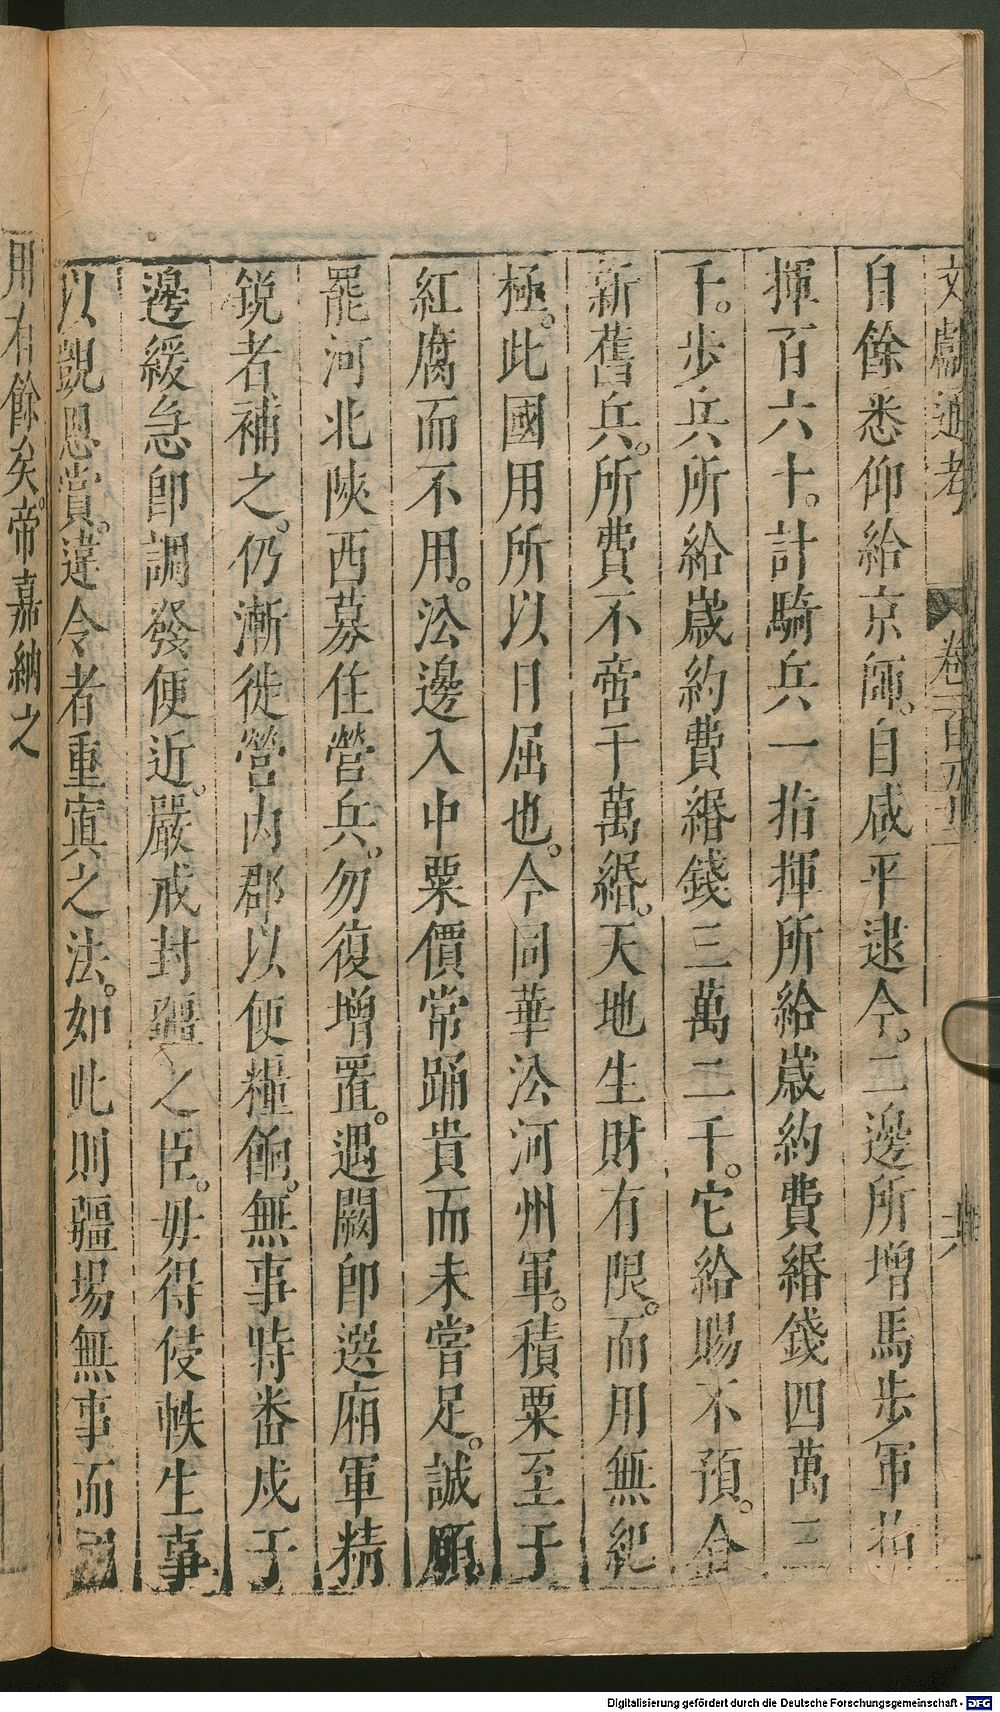 文獻通考 卷一百五十二 共
自餘悉仰給京師。自咸平逮今。二邊所增馬步軍指
揮百六十。計騎兵一指揮所給歲約費緡錢四萬三
千。步兵所給歲約費緡錢三萬二千。它給賜不預。合
新舊兵。所費不啻千萬緡。天地生財有限。而用無紀
極。此國用所以日屈也。今同華㳂河州軍。積粟至于
紅腐而不用。㳂邊入中粟價常踊貴而未嘗足。誠願
罷河北陜西募住營兵。勿復增置。遇闕即選廂軍精
銳者補之。仍漸徙營內郡以便糧餉。無事時番戍于
邊緩急即調發便近。嚴戒封疆之臣。毋得侵軼生事
以覬恩賞。違令者重寘之法。如此則疆場無事而國
用有餘矣。帝嘉納之
Digitalisierung gefördert durch die Deutsche Forschungsgemeinschaft - DFG